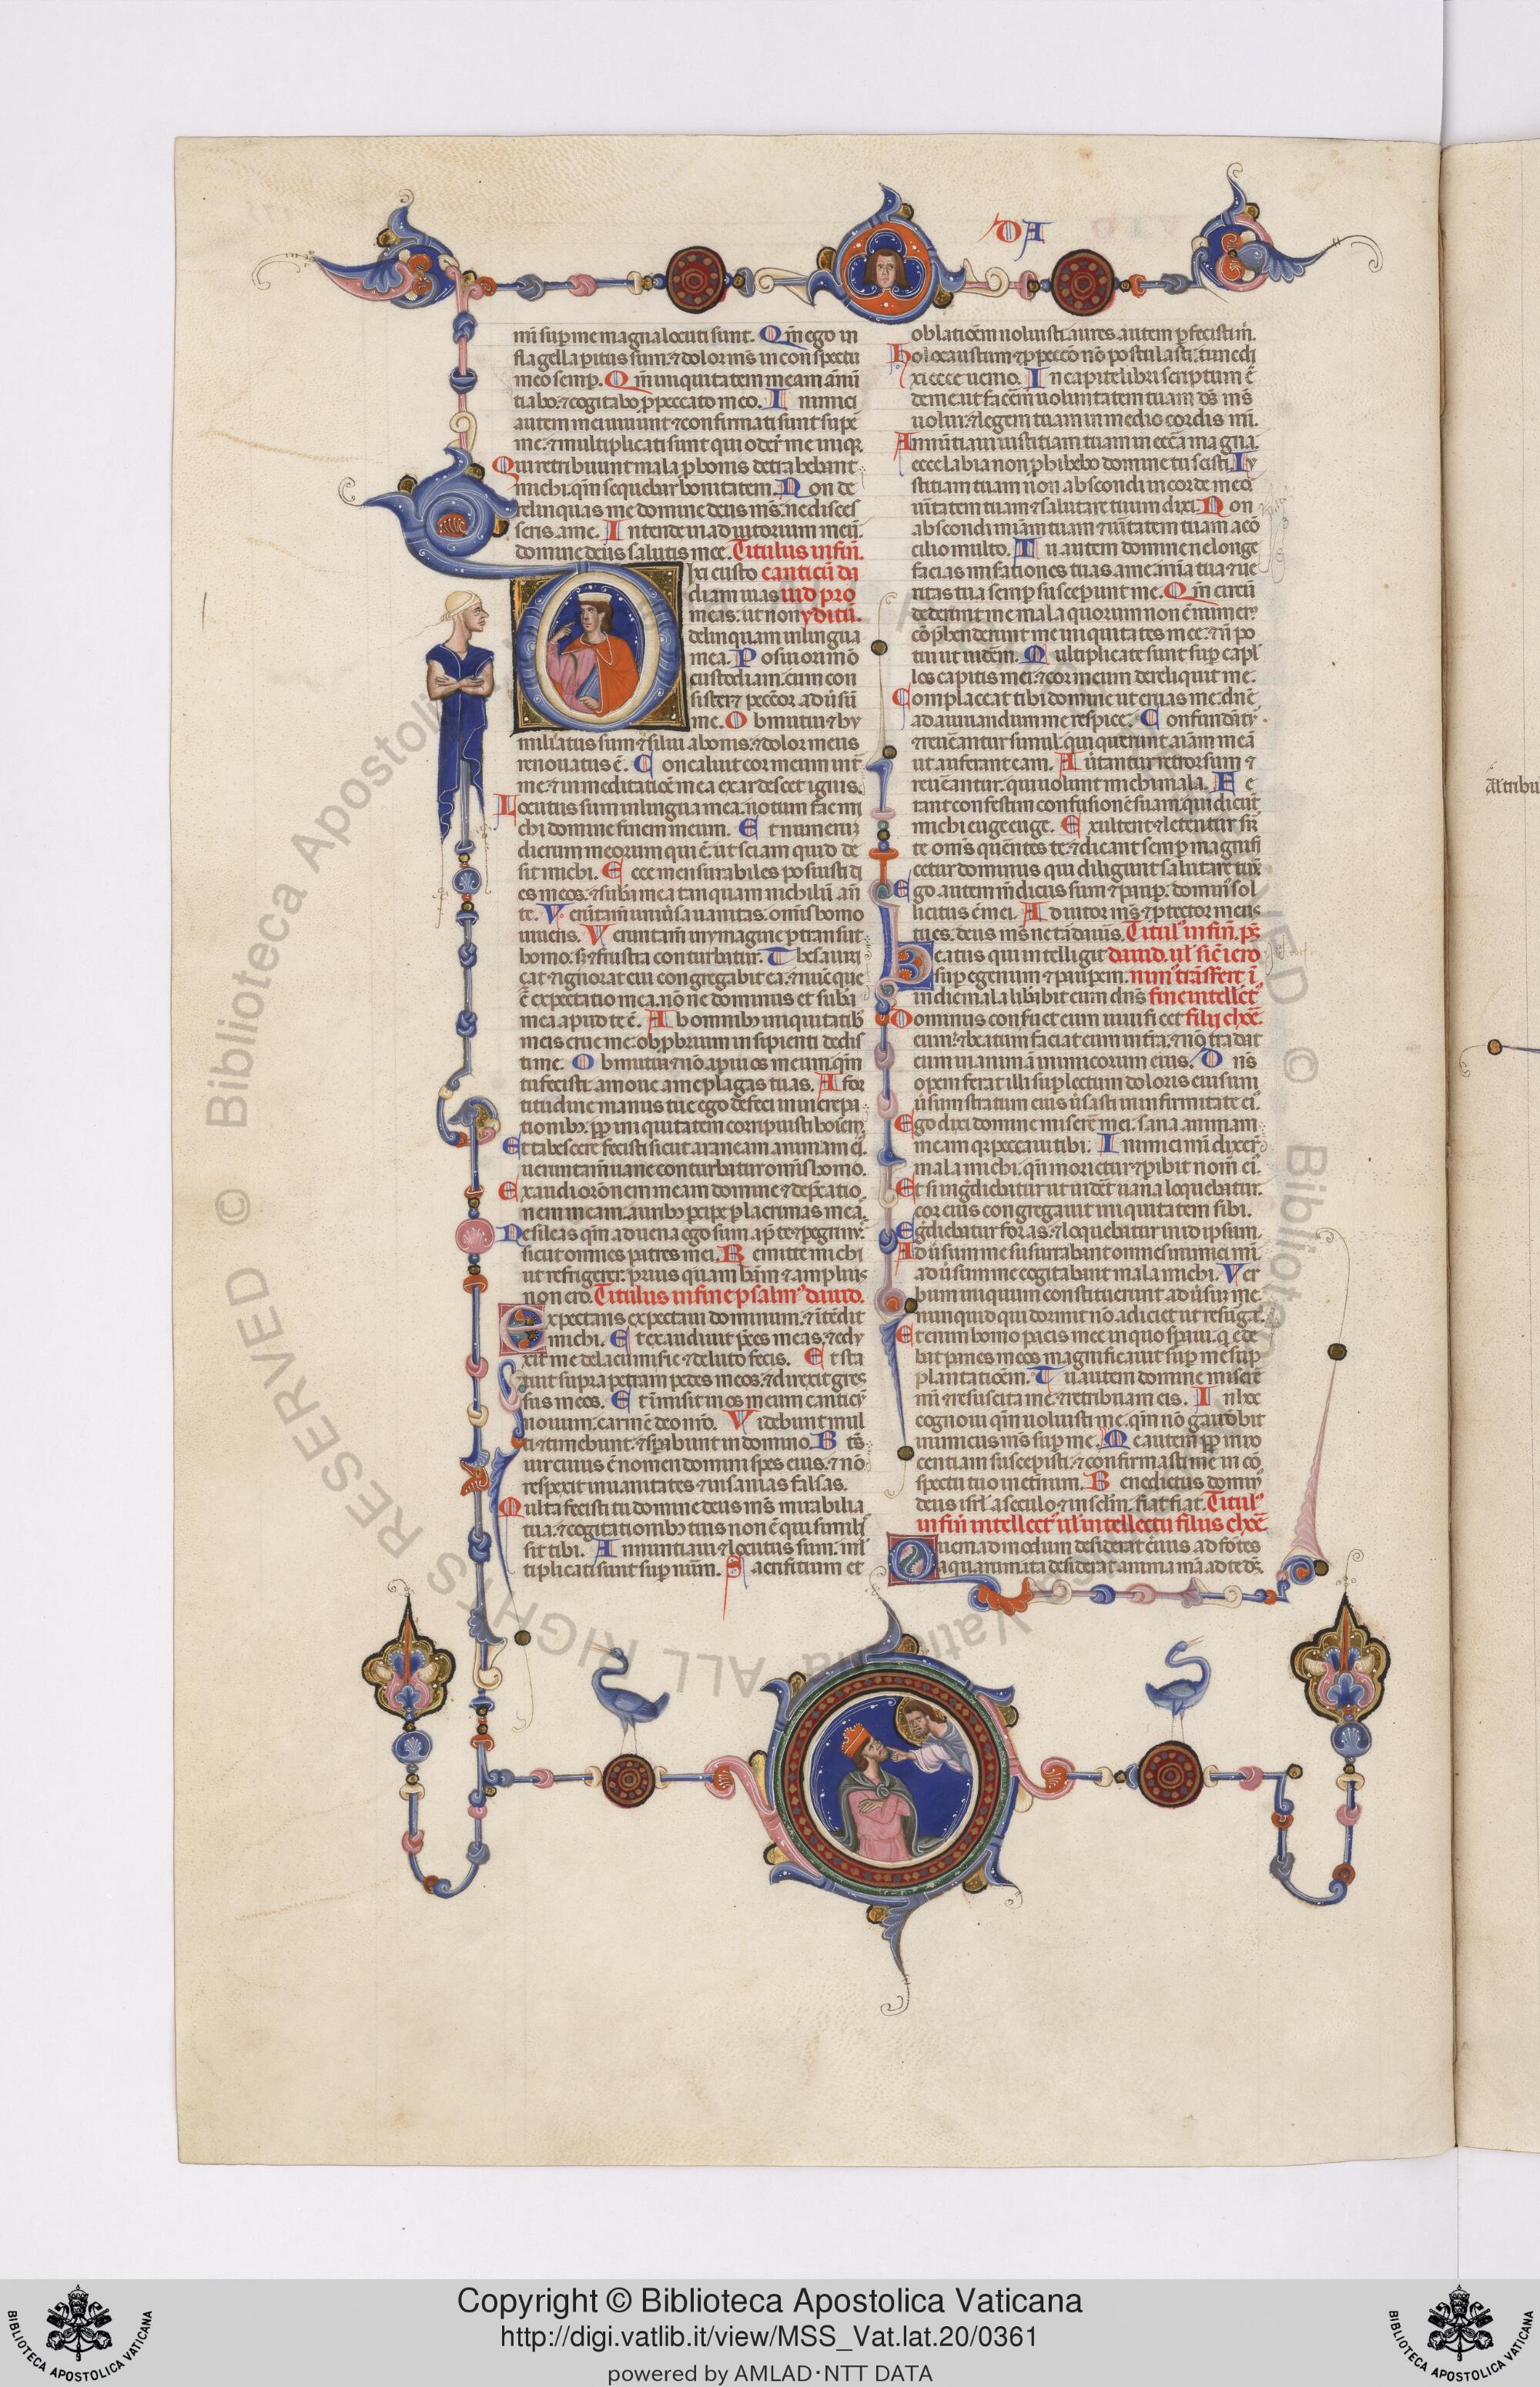 DA
mī sup me magna locuti sunt. Qm̄ ego in
flagella paratus sum. ⁊ dolor ms̄ in conspectu
meo semp. Qm̄ iniquitatem meam ānū
tiabo. ⁊ cogitabo p peccato meo. Inimici
autem mei uiuunt ⁊ confirmati sunt supe
me. ⁊ multiplicati sunt qui oder̄ me inique.
Qui retribuunt mala p bonis detrahebant
michi. qm̄ sequebar bonitatem. Non de
relinquas me domine deus ms̄. ne disces
seris a me. Intende in adiutorium meū.
domine deus salutis mee. Titulus in fin̄.
Dixi custo canticū da
diam uias uid pro
meas. ut non yditū.
delinquam in lingua
mea. Posui ori mō
custodiam. cum con
sister& peccor̄ aduersū
me. Obmutui & hu
miliatus sum ⁊ silui a bonis. ⁊ dolor meus
renouatus ē. Concaluit cor meum int̄
me. ⁊ in meditatiōe mea exardescet ignis.
Locutus sum in lingua mea. notum fac mi
chi domine finem meum. Et numerum
dierum meorum qui ē. ut sciam quid de
sit michi. Ecce mensurabiles posuisti di
es meos. ⁊ suba mea tanquam nichilū an̄
te. Veruntam̄ uniūsa uanitas. omīs homo
uiuens. Veruntam̄ in ymagine ptransiit
homo. s; ⁊ frustra conturbatur. Thesauri
zat ⁊ ignorat cui congregabit ea. ⁊ nūc que
ē expectatio mea. nōne dominus et suba
mea apud te ē. Ab omnibus iniquitatibus
meis erue me. obpbrium insipienti dedis
ti me. Obmutui ⁊ nō apui os meum. qm̄
tu fecisti. amoue a me plagas tuas. A for
titudine manus tue ego defeci in increpa
tionibus. pp iniquitatem corripuisti hoīem.
Et tabescere fecisti sicut araneam animam ei.
ueruntam̄ uane conturbatur omīs homo.
Exaudi oronem meam domine ⁊ depcatio
nem meam. auribus pcipe lacrimas meas.
Ne sileas qm̄ aduena ego sum. ap̄ te ⁊ pegrin̄.
sicut omnes patres mei. Remitte michi
ut refrigerer. prius quam habeam ⁊ amplius
non ero. Titulus in fine psalm dauid.
Expectans expectaui dominum. ⁊ ītēdit
michi. Et exaudiuit pces meas. ⁊ edu
xit me de lacu miserie ⁊ de luto fecis. Et sta
tuit supra petram pedes meos. ⁊ direxit gres
sus meos. Et īmisit in os meum canticū
nouum. carmē deo nrō. Videbunt mul
ti ⁊ timebunt. ⁊ sperabunt in domino. Btus
uir cuius ē nomen domini spes eius. ⁊ nō
respexit in uanitates ⁊ insanias falsas.
Multa fecisti tu domine deus ms̄ mirabilia
tua. ⁊ cogitationibus tuis non ē qui similis
sit tibi. Annuntiaui ⁊ locutus sum. ml̄
tiplicati sunt sup num̄. Sacrifitium et
oblatiōem noluisti. aures autem pfecisti m̄.
Holocaustum ⁊ p peccō nō postulasti. tunc di
xi ecce uenio. In capite libri scriptum ē
de me. ut facem uoluntatem tuam ds̄ ms̄
uolui. ⁊ legem tuam in medio cordis mī.
Annūtiaui iustitiam tuam in ecc̄a magna.
ecce labia non phibebo domine tu scisti. Iu
stitiam tuam non abscondi in corde meo.
ūitatem tuam ⁊ salutare tuum dixi. Non
abscondi mīam tuam ⁊ ūitatem tuam a cō
cilio multo. Tu autem domine ne longe
facias misationes tuas a me. mīa tua ⁊ ue
ritas tua semp susceperunt me. Qm̄ circū
dederunt me mala quorum non ē numer̄.
cōphenderunt me iniquitates mee. ⁊ n̄ po
tui ut uidem. Multiplicate sunt sup capil
los capitis mei. ⁊ cor meum dereliquit me.
Complaceat tibi domine ut eruas me. dn̄e
ad aiuuandum me respice. Confundant̄
⁊ reueantur simul. qui querunt aīam meā
ut auferant eam. Auertantur retrorsum ⁊
reueantur. qui uolunt michi mala. Fe
rant confestim confusionē suam. qui dicūt
michi euge euge. Exultent ⁊ letentur sup
te oms̄ querentes te. ⁊ dicant semp magnifi
cetur dominus qui diligunt salutare tuum.
Ego autem mendicus sum ⁊ paup. dominus sol
licitus ē mei. Adiutor ms̄ ⁊ ptector meus
tu es. deus ms̄ ne tardaueris. Titul in fin̄. ps̄
Beatus qui intelligit dauid. ul sic iero
sup egenum ⁊ pauperem. nim trāsfert ī
in die mala liberabit eum dn̄s. fine intellect
Dominus conseruet eum. uiuificet filij choē.
eum. ⁊ beatum faciat eum in terra. ⁊ nō tradat
eum in animā inimicorum eius. Dns̄
opem ferat illi sup lectum doloris eius. uni
ūsum stratum eius ūsasti in infirmitate ei.
Ego dixi domine miserē mei. sana animam
meam qr peccaui tibi. Inimici mī dixer̄
mala michi. qn̄ morietur ⁊ pibit nom̄ ei.
Et si ingrediebatur ut uidēt uana loquebatur.
cor eius congregauit iniquitatem sibi.
Egrediebatur foras. ⁊ loquebatur in id ipsum.
Adūsum me susurrabant omnes inimici mī.
adūsum me cogitabant mala michi. Ver
bum iniquum constituerunt adūsum me.
nunquid qui dormit nō adiciet ut resurgat.
Etenim homo pacis mee in quo speraui. q ede
bat panes meos magnificauit sup me sup
plantatiōem. Tu autem domine miserē
mī ⁊ resuscita me. ⁊ retribuam eis. In hoc
cognoui qm̄ uoluisti me. qm̄ nō gaudebit
inimicus ms̄ sup me. Me autem pp inno
centiam suscepisti. ⁊ confirmasti me in cō
spectu tuo in eternum. Benedictus dominus
deus isrl a seculo ⁊ in sclm̄. fiat fiat. Titul
in fin̄ intellect ul intellectu filiis choē.
Quemadmodum desiderat ceruus ad fōtes
aquarum. ita desiderat anima mā ad te ds̄.
Copyright © Biblioteca Apostolica Vaticana
http://digi.vatlib.it/view/MSS_Vat.lat.20/0361
powered by AMLAD·NTT DATA
BIBLIOTECA APOSTOLICA VATICANA
BIBLIOTECA APOSTOLICA VATICANA
© Biblioteca Apostolica Vaticana ALL RIGHTS RESERVED